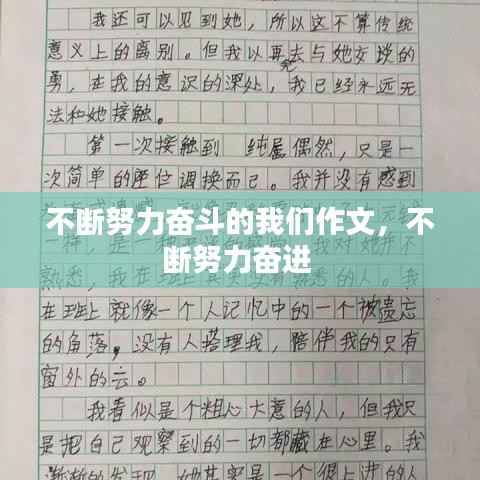 我还可以见到她，所以这不算传统
意义上的离别。但我以再去与她交谈的
勇，在我的意识的深处，我已经永远无
法和她接触。
第一次接触到 纯属偶然，只是一
次简单的座位调换而已。我并没有感到
不断努力奋斗的我们作文，不
断努力奋进
熟悉，我在班上
在班上就像一个人记忆中的一个被遗忘
的角落，没有人搭理我，陪伴我的只有
窗外的云。
我看似是个粗心大意的人，但我只
是把自己观察到的一切都藏在心里。我
渐渐的发现，她其实是一个很上进的人